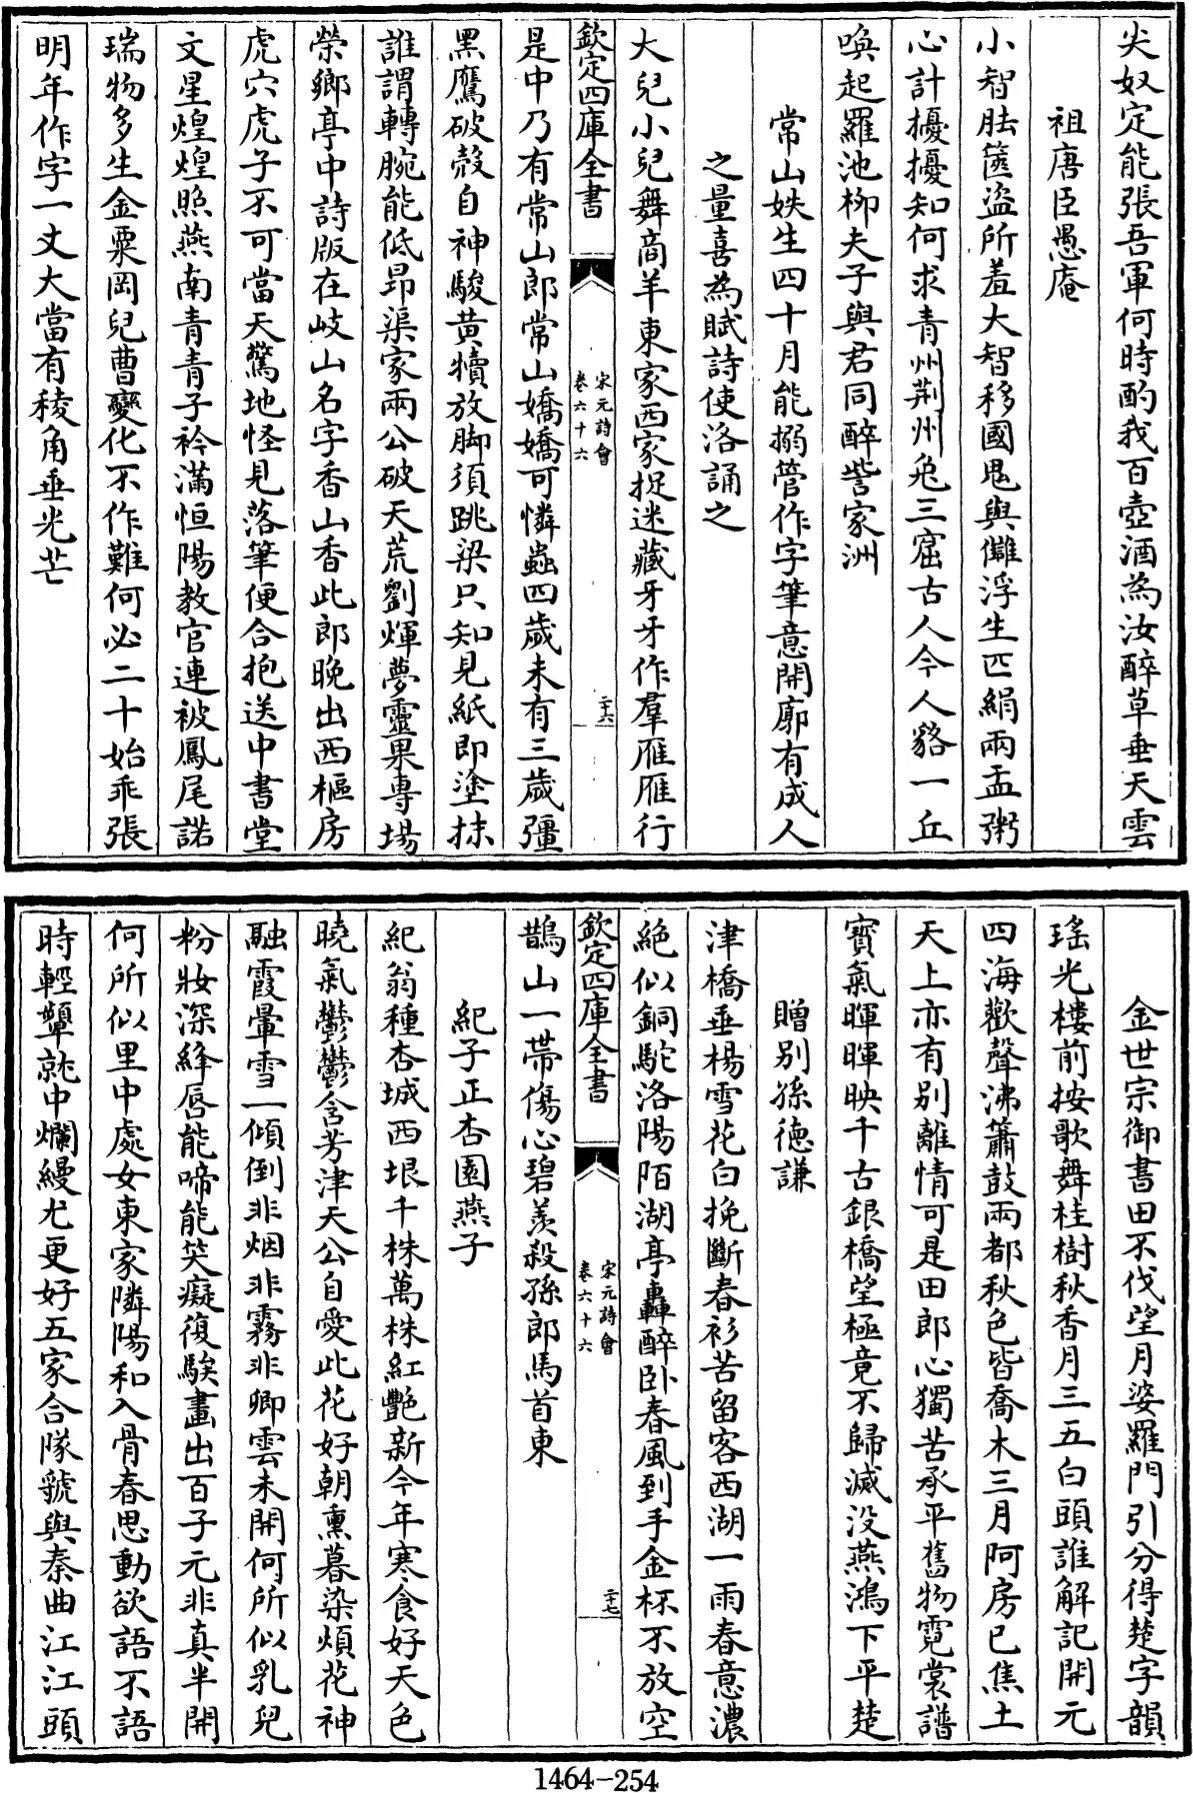 尖奴定能張吾軍何時酌我百壺酒為汝醉草垂天雲
祖唐臣愚庵
小智胠篋盜所羞大智移國鬼與讎浮生匹絹兩盂粥
心計擾擾知何求青州荆州兔三窟古人今人貉一丘
喚起羅池柳夫子與君同醉訾家洲
常山妷生四十月能搦管作字筆意開廓有成人
之量喜為賦詩使洛誦之
大兒小兒舞商羊東家西家捉迷藏牙牙作羣雁雁行
欽定四庫全書
宋元詩會
卷六十六
二十六
是中乃有常山郎常山嬌嬌可憐蟲四歲未有三歲彊
黑鷹破殼自神駿黄犢放脚須跳梁只知見紙即塗抹
誰謂轉腕能低昂渠家兩公破天荒劉煇夢靈果專場
榮鄉亭中詩版在岐山名字香山香此郎晚出西樞房
虎穴虎子不可當天驚地怪見落筆便合抱送中書堂
文星煌煌照燕南青青子衿滿恒陽教官連被鳳尾諾
瑞物多生金粟岡兒曹變化不作難何必二十始乖張
明年作字一丈大當有稜角垂光芒
金世宗御書田不伐望月婆羅門引分得楚字韻
瑤光樓前按歌舞桂樹秋香月三五白頭誰解記開元
四海歡聲沸簫鼓兩都秋色皆喬木三月阿房已焦土
天上亦有别離情可是田郎心獨苦承平舊物霓裳譜
寳氣暉暉映千古銀橋望極竟不歸滅没燕鴻下平楚
贈别孫德謙
津橋垂楊雪花白挽斷春衫苦留客西湖一雨春意濃
絶似銅駝洛陽陌湖亭轟醉卧春風到手金杯不放空
欽定四庫全書
宋元詩會
卷六十六
二十七
鵲山一帶傷心碧羨殺孫郎馬首東
紀子正杏園燕子
紀翁種杏城西垠千株萬株紅艷新今年寒食好天色
曉氣鬱鬱含芳津天公自愛此花好朝熏暮染煩花神
融霞暈雪一傾倒非烟非霧非卿雲未開何所似乳兒
粉妝深絳唇能啼能笑癡復騃畫出百子元非真半開
何所似里中處女東家隣陽和入骨春思動欲語不語
時輕顰就中爛縵尤更好五家合隊虢與秦曲江江頭
1464-254